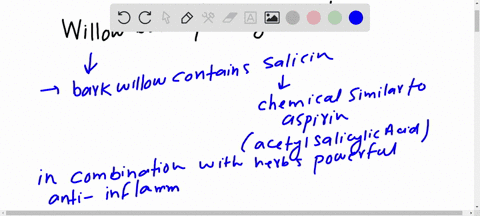 Willow
→ bark willow contains salicin
chemical similar to
aspirin
(acetyl salicylic Acid)
in combination with herbs powerful
anti-inflamm